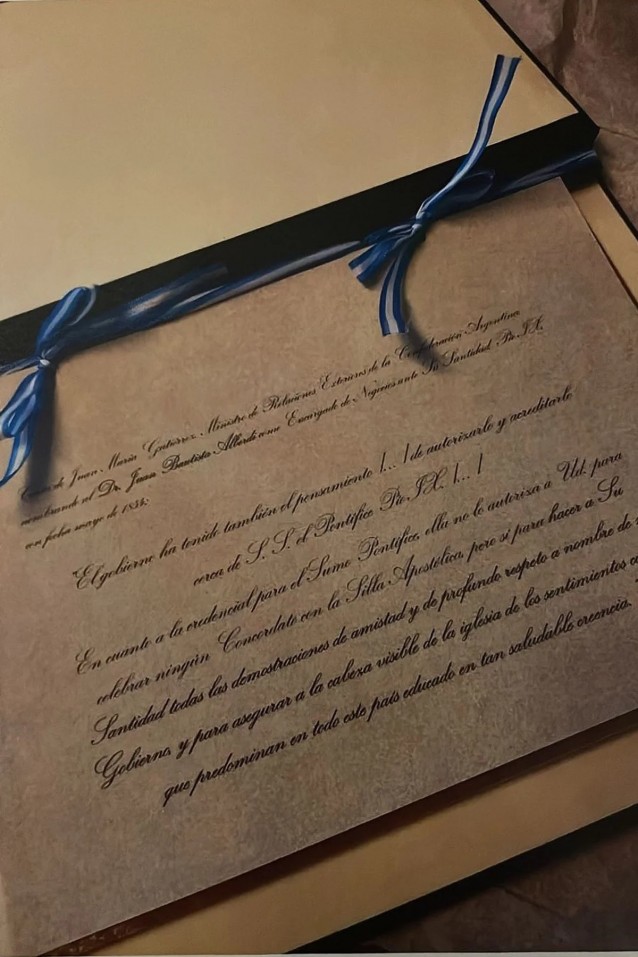 de Juan María Gutiérrez, Ministro de Relaciones Exteriores de la Confederación Argentina
nombrando al Dr. Juan Bautista Alberdi como Encargado de Negocios ante Su Santidad Pío IX,
con fecha mayo de 1854:
"El gobierno ha tenido también el pensamiento [... ] de autorizarle y acreditarle
cerca de S. S. el Pontífice Pío IX. [... ]
En cuanto a la credencial para el Sumo Pontífice, ella no le autoriza a Ud. para
celebrar ningún Concordato con la Silla Apostólica, pero sí para hacer a Su
Santidad todas las demostraciones de amistad y de profundo respeto a nombre de
Gobierno, y para asegurar a la cabeza visible de la iglesia de los sentimientos
que predominan en todo este país educado en tan saludable creencia.